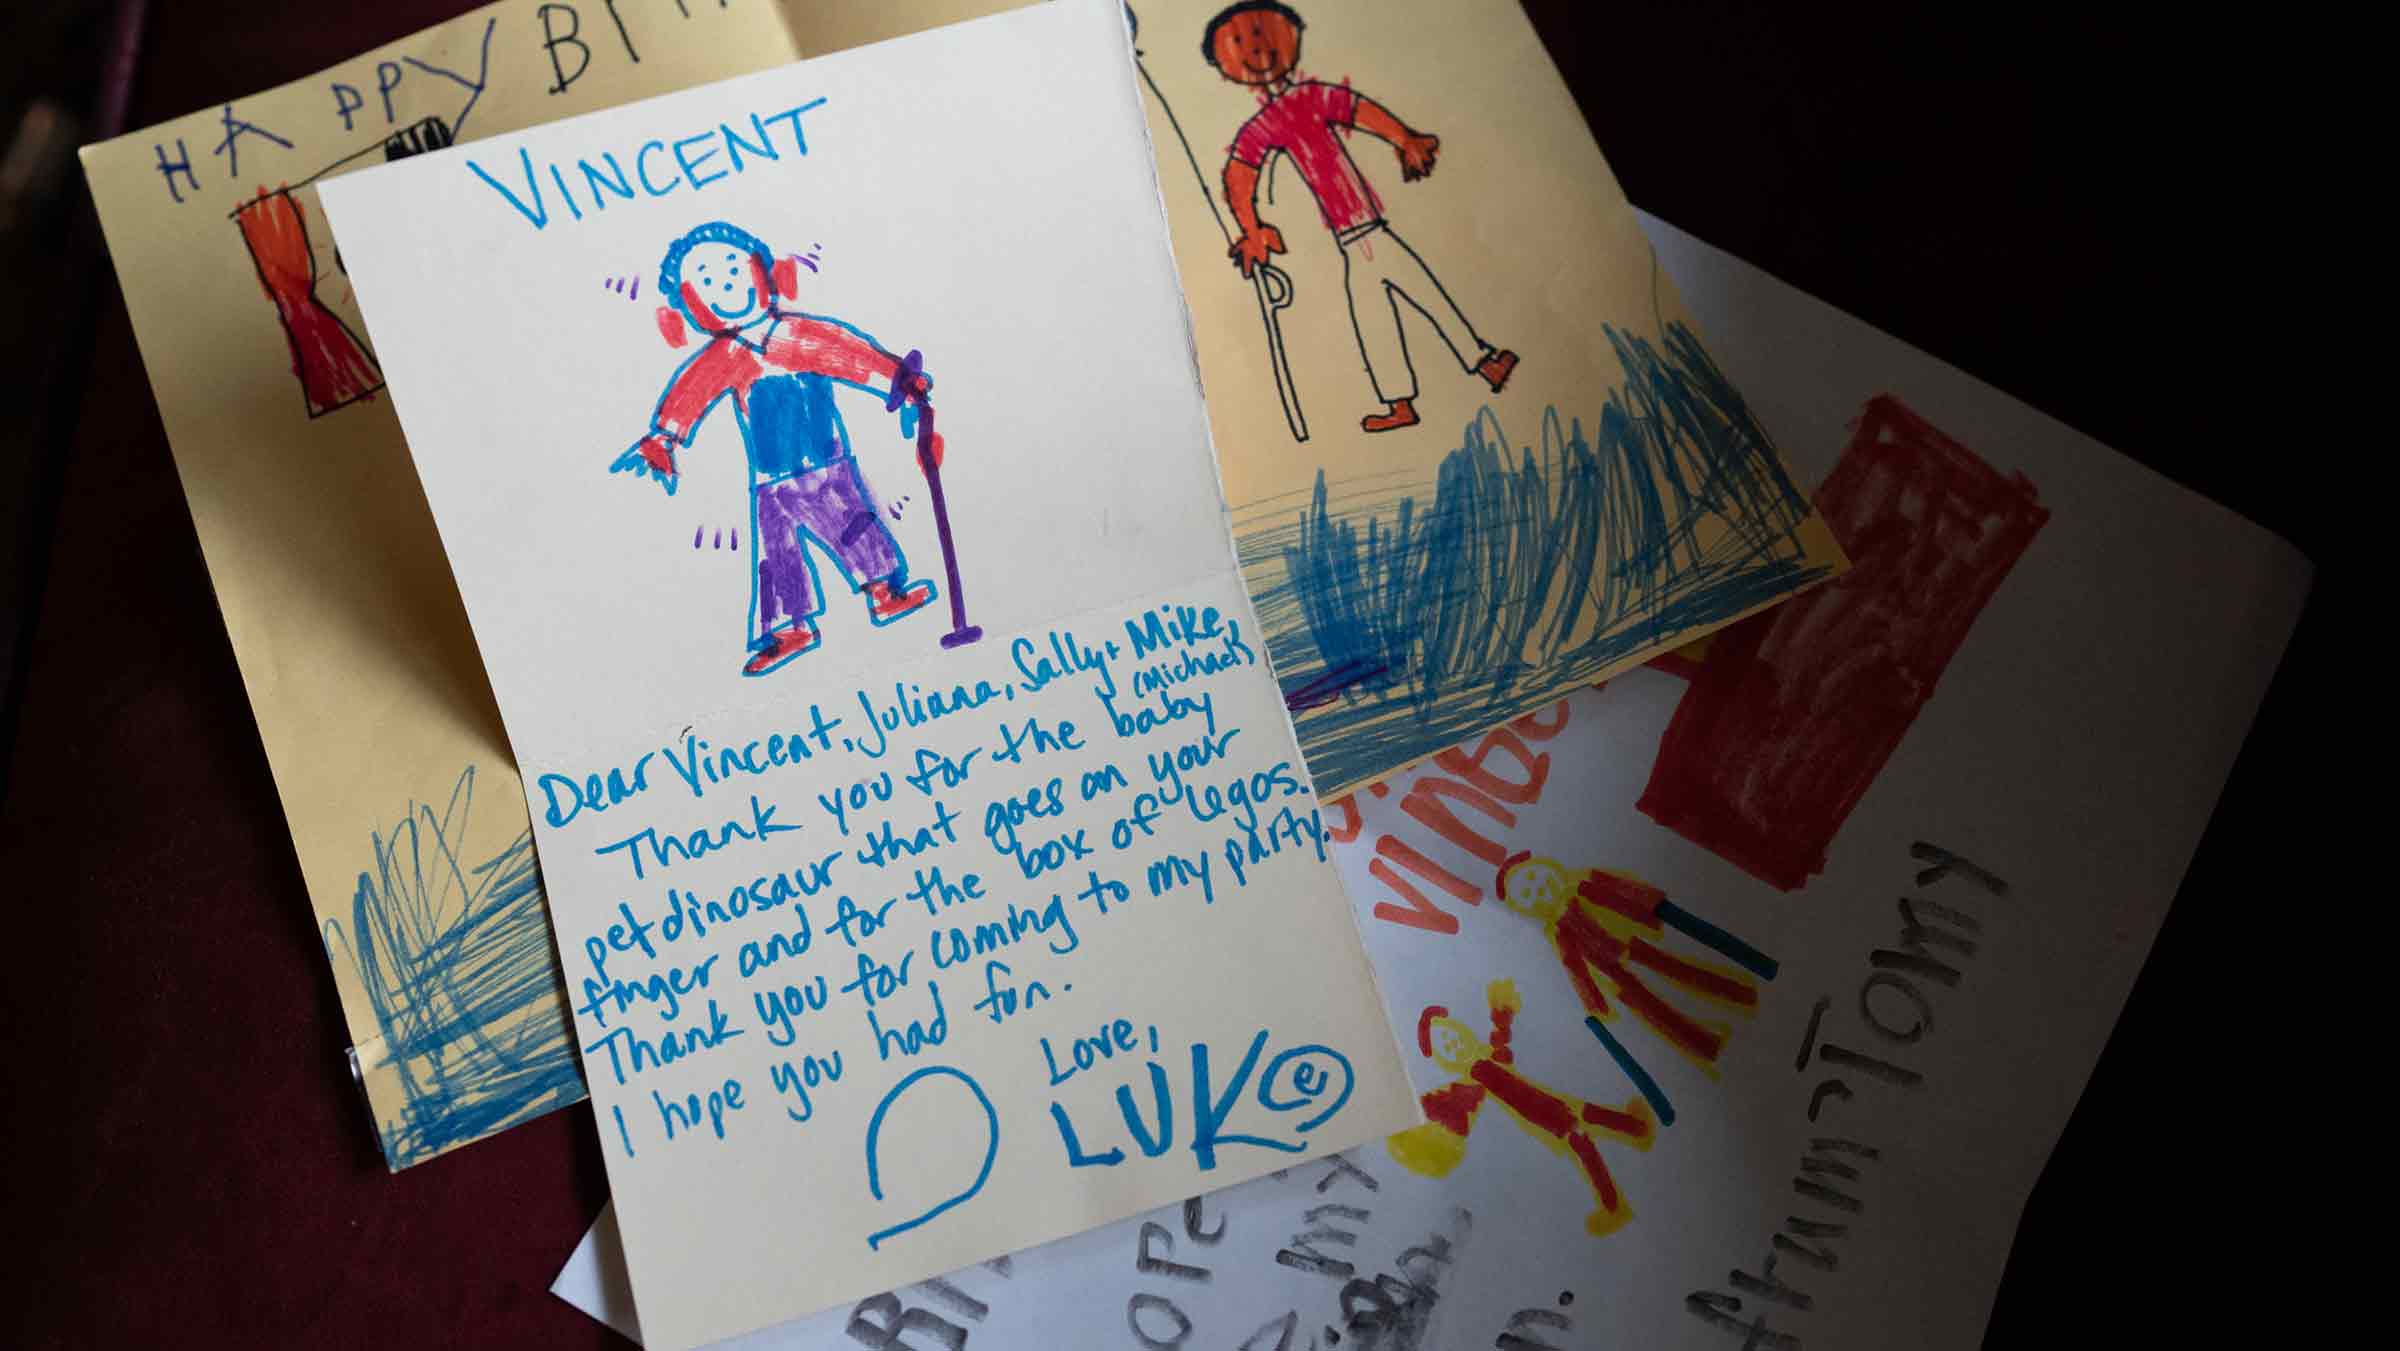 HAPPY BIT
VINCENT
Dear Vincent, Juliana, Sally + Mike,
(Michael)
Thank you for the baby
pet dinosaur that goes on your
finger and for the box of Legos.
Thank you for coming to my party.
I hope you had fun.
Love,
LUKe
VINCE
frum Tomy
ope
my
n.